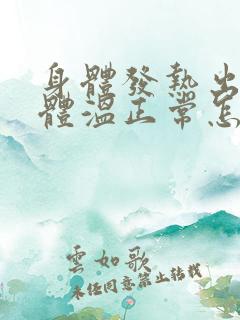 身體發熱出
體溫正常怎
雲如歌
未经同意禁止转载